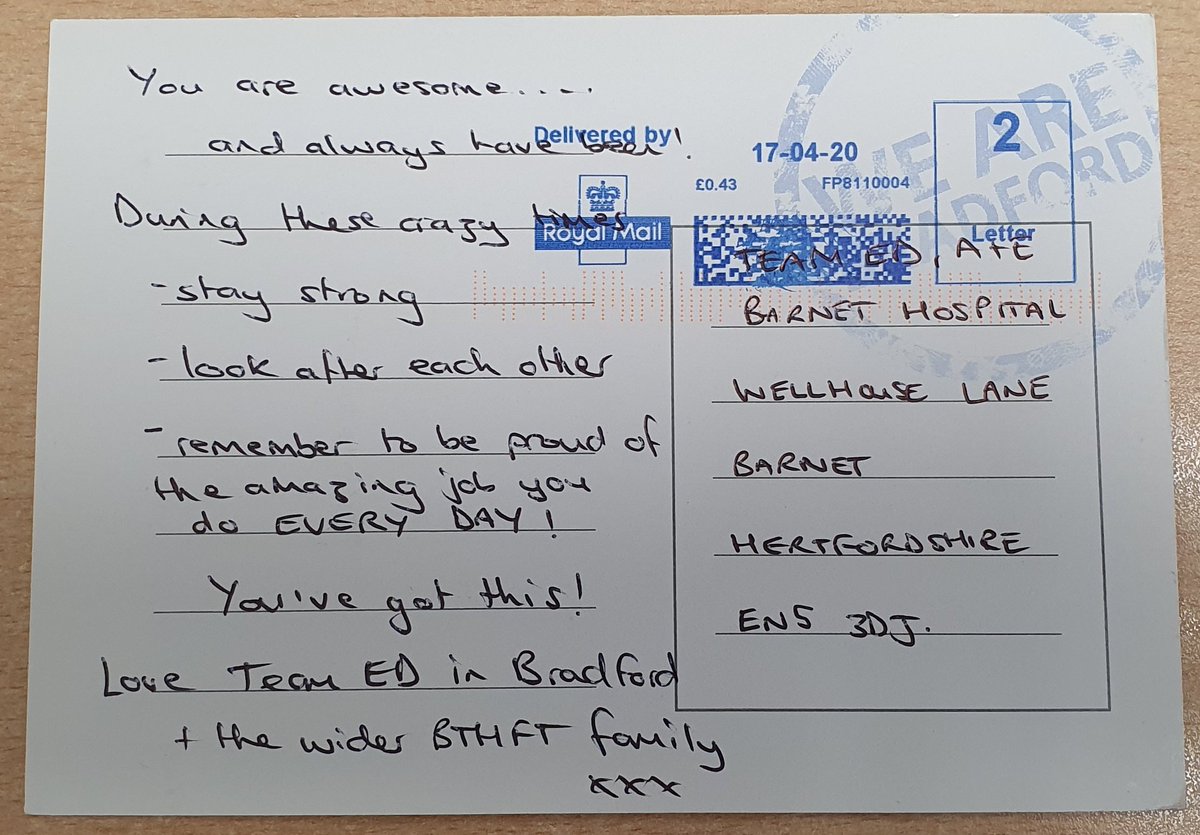 You are awesome.....
and always have been!
During these crazy times
-stay strong
-look after each other
-remember to be proud of
the amazing job you
do EVERY DAY!
You've got this!
Love Team ED in Bradford
+ the wider BTHFT family
xxx
Delivered by
Royal Mail
17-04-20
£0.43 FP8110004
2
Letter
WE ARE
ADFORD
TEAM ED, A+E
BARNET HOSPITAL
WELLHOUSE LANE
BARNET
HERTFORDSHIRE
EN5 3DJ.